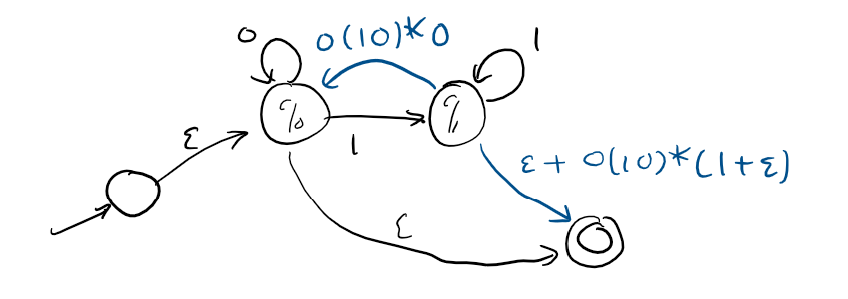 0
0(10)*0
1
q₀
q₁
1
ε
ε + 0(10)*(1+ε)
ε